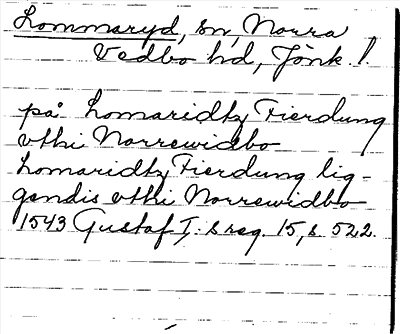 Lommaryd, sn, Norra
Vedbo hd, Jönk. l.
på Lomaridtz Fierdung
vthi Norrewidbo
Lomaridtz Fierdung lig-
gendis vthi Norrewidbo
1543 Gustaf I:s reg. 15, s. 522.